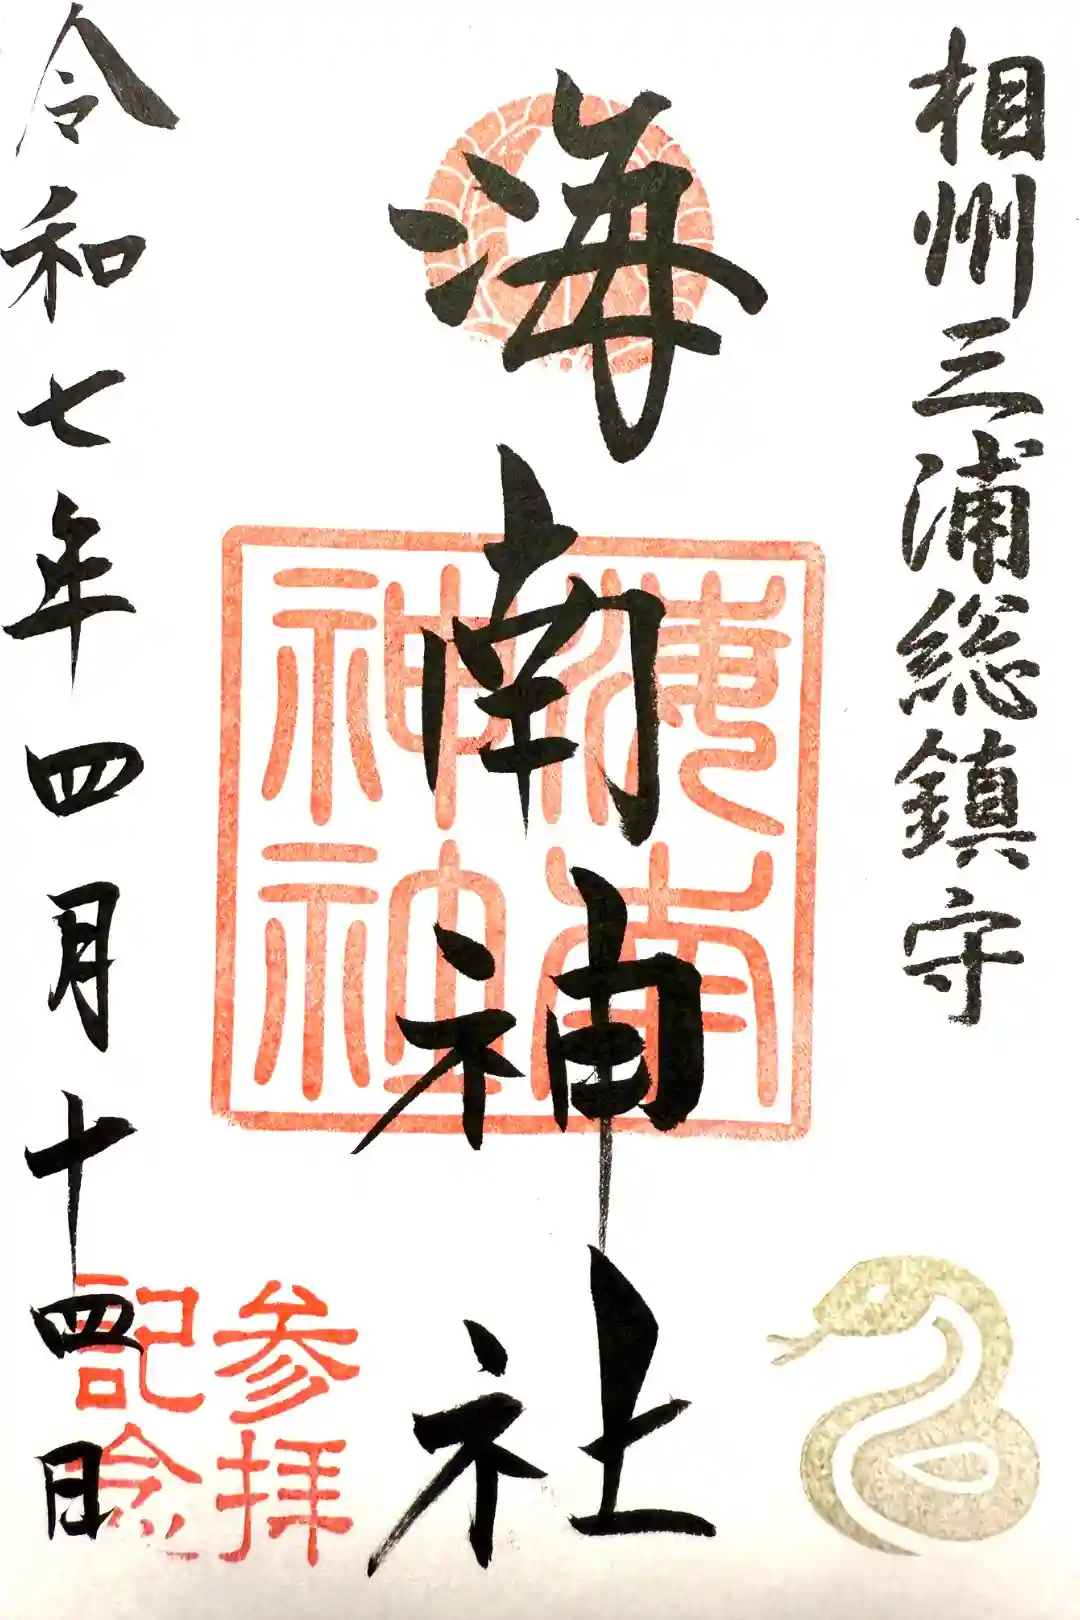 相州三浦総鎮守
海南神社
海南
神社
参拝
記念
令和七年四月十四日